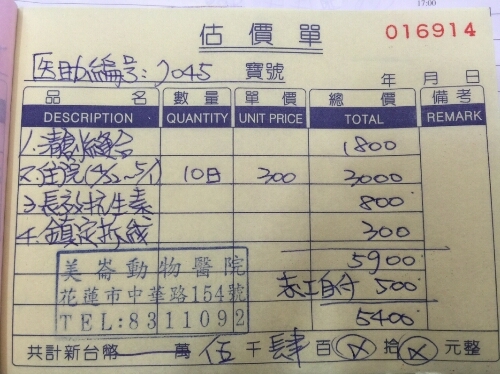 17:00
估價單
016914
医助編号:2045 寶號
年 月 日
品名 數量 單價 總價 備考
DESCRIPTION QUANTITY UNIT PRICE TOTAL REMARK
1. 清創縫合 1800
2. 住院(4/22~5/1) 10日 300 3000
3. 長效抗生素 800
4. 鎮定拆線 300
5900
志工自付 500
5400
美崙動物醫院
花蓮市中華路154號
TEL:8311092
共計新台幣 萬 伍 千 肆 百 拾 元整